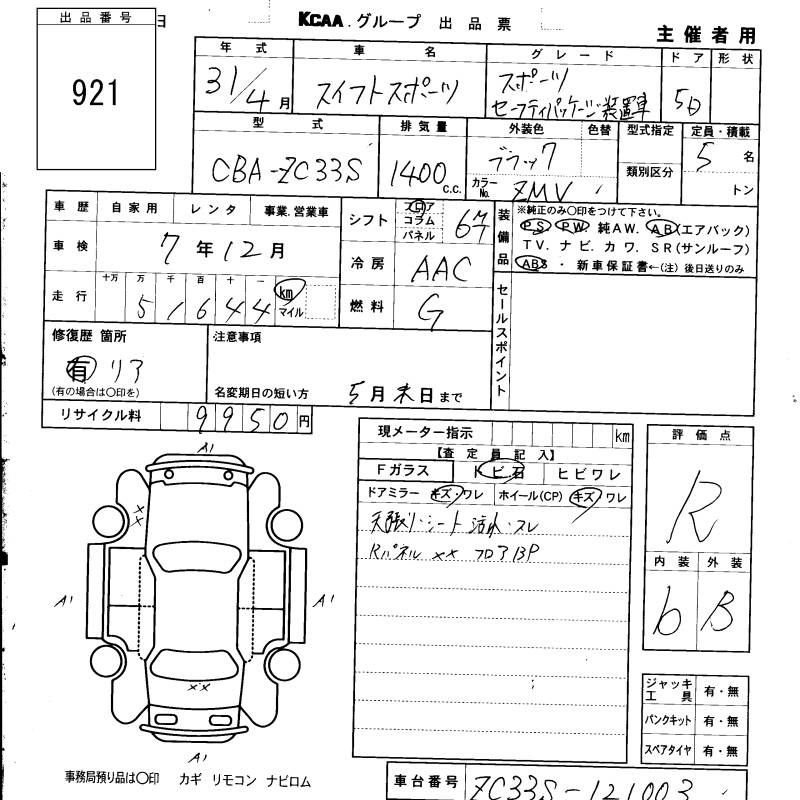 出品番号 日 KCAA.グループ 出品票 主催者用
921
年式 車名 グレード ドア 形状
31/4月 スイフトスポーツ スポーツ セーフティパッケージ装着車 5D
型式 排気量 外装色 色替 型式指定 定員・積載
CBA-ZC33S 1400 c.c. ブラック 類別区分 5 名
カラーNo. ZMV トン
車歴 自家用 レンタ 事業.営業車 シフト フロア コラム パネル 6 装備品 ※純正のみ〇印をつけて下さい。
PS PW 純AW. AB(エアバック)
車検 7年12月 冷房 AAC TV.ナビ.カワ.SR(サンルーフ)
ABS・新車保証書←(注)後日送りのみ
走行 十万 万 千 百 十 一 51644 km マイル 燃料 G セールスポイント
修復歴 箇所 注意事項
有 リア
(有の場合は〇印を) 名変期日の短い方 5月末日まで
リサイクル料 9950円
現メーター指示 km 評価点
【査定員記入】
Fガラス トビ石 ヒビワレ R
ドアミラー キズ・ワレ ホイール(CP) キズ ワレ
天張り・シート 汚れ・スレ
Rパネル ×× フロアBP
内装 外装
b B
A1
××
A1 A1
××
A1
ジャッキ工具 有・無
パンクキット 有・無
スペアタイヤ 有・無
事務局預り品は〇印 カギ リモコン ナビロム
車台番号 ZC33S-121003